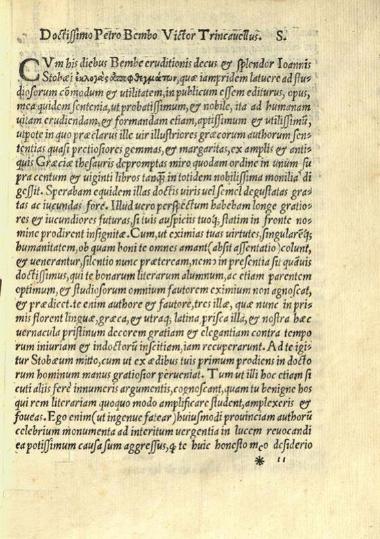 Doctissimo Petro Bembo Victor Trincauellus. S.
CVm his diebus Bembe eruditionis decus & splendor Ioannis
Stobæi ἐκλογὰς ἀποφθεγμάτων, quæ iampridem latuere ad stu⸗
diosorum cōmodum & utilitatem, in publicum essem editurus, opus,
mea quidem sentenia, ut probatissimum, & nobile, ita ad humanam
uitam erudiendam, & formandam etiam, aptissimum & utilissimū,
utpote in quo præclarus ille uir illustriores græcorum authorum sen⸗
tentias quasi pretiosiores gemmas, & margaritas, ex amplis & anti⸗
quis Græciæ thesauris depromptas miro quodam ordine in unum su
pra centum & uiginti libros tanq̄ in totidem nobilissima monilia di
gessit. Sperabam equidem illas doctis uiris uel semel degustatas gra⸗
tas ac iucundas fore. Illud uero perspectum habebam longe gratio⸗
res & iucundiores futuras, si iuis auspiciis tuoq;, statim in fronte no⸗
mine prodirent insignitæ. Cum, ut eximias tuas uirtutes, singularēq;
humanitatem, ob quam boni te omnes amant (absit assentatio) colunt,
& uenerantur, silentio nunc præteream, nemo in presentia sit quāuis
doctissimus, qui te bonarum literarum alumnum, ac etiam parentem
optimum, & studiosorum omnium fautorem eximium non agnoscat,
& prædicet. te enim authore & fautore, tres illæ, quæ nunc in pri⸗
mis florent linguæ, græca, & utraq; latina prisca illa, & nostra hæc
uernacula pristinum decorem gratiam & elegantiam contra tempo
rum iniuriam & indoctorū insciitiam, iam recuperarunt. Ad te igi⸗
tur Stobæum mitto, cum ut ex ædibus tuis primum prodiens in docto
rum hominum manus gratiosior perueniat. Tum ut illi hoc etiam si
cuti aliis fere innumeris argumentis, cognoscant, quam tu benigne hos
qui rem literariam quoquo modo amplificare student, amplexeris &
foueas. Ego enim (ut ingenue fatear) huiusmodi prouinciam authorū
celebrium monumenta ad interitum uergentia in lucem reuocandi
ea potissimum causa sum aggressus, q̄ te huic honesto meo desiderio
* ii